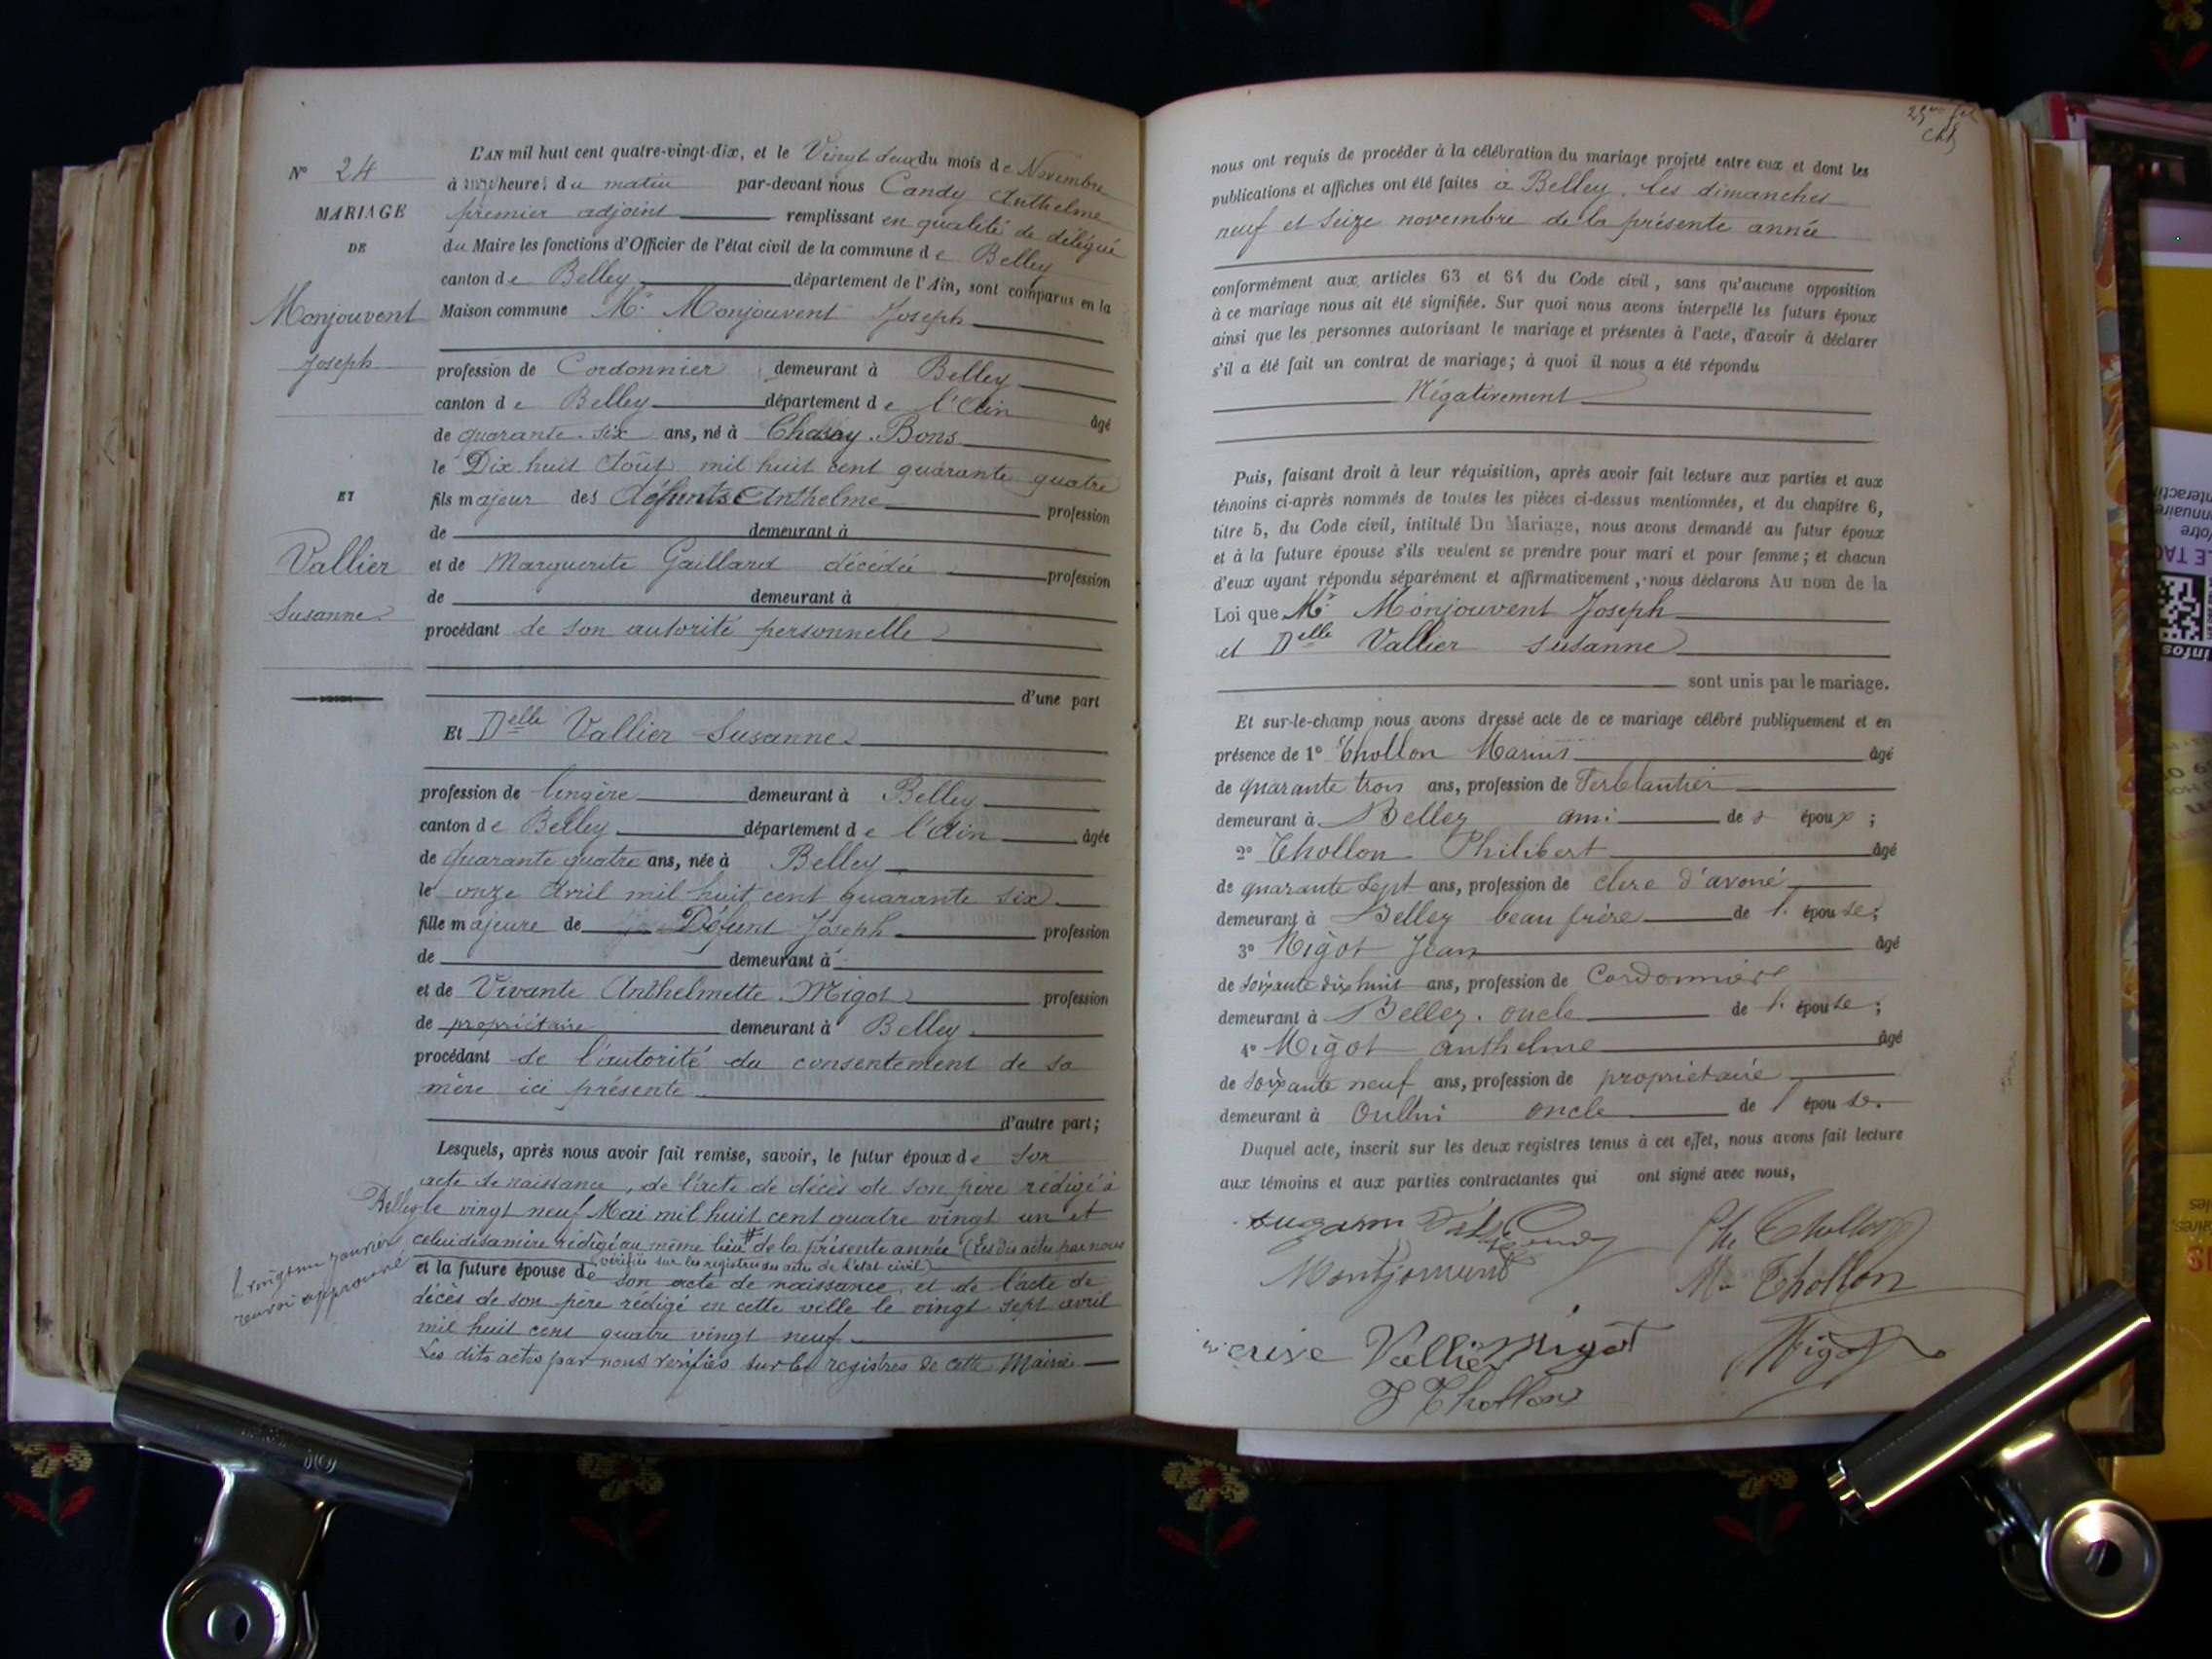 N° 24
MARIAGE
DE
Monjouvent
Joseph
ET
Vallier
Susanne
L'AN mil huit cent quatre-vingt-dix, et le Vingt deux du mois de Novembre
à onze heures du matin par-devant nous Candy Anthelme
premier adjoint remplissant en qualité de délégué
du Maire les fonctions d'Officier de l'état civil de la commune de Belley
canton de Belley département de l'Ain, sont comparus en la
Maison commune Mr Monjouvent Joseph
profession de Cordonnier demeurant à Belley
canton de Belley département de l'Ain âgé
de quarante-six ans, né à Chazey-Bons
le Dix huit Août mil huit cent quarante quatre
fils majeur des défunts Anthelme profession
de demeurant à
et de Marguerite Gaillard décédée profession
de demeurant à
procédant de son autorité personnelle
d'une part
Et Delle Vallier Susanne
profession de lingère demeurant à Belley
canton de Belley département de l'Ain âgée
de quarante quatre ans, née à Belley
le onze Avril mil huit cent quarante six
fille majeure de Défunt Joseph profession
de demeurant à
et de Vivante Anthelmette Migot profession
de propriétaire demeurant à Belley
procédant de l'autorité du consentement de sa
mère ici présente
d'autre part;
Lesquels, après nous avoir fait remise, savoir, le futur époux de son
acte de naissance, de l'acte de décès de son père rédigé à
Belley le vingt neuf Mai mil huit cent quatre vingt un et
celui de sa mère rédigé au même lieu # de la présente année (Les dits actes par nous
vérifiés sur les registres des actes de l'état civil)
# le vingt un janvier
renvoi approuvé
et la future épouse de son acte de naissance et de l'acte de
décès de son père rédigé en cette ville le vingt sept avril
mil huit cent quatre vingt neuf
Les dits actes par nous vérifiés sur les registres de cette Mairie
nous ont requis de procéder à la célébration du mariage projeté entre eux et dont les
publications et affiches ont été faites à Belley, les dimanches
neuf et seize novembre de la présente année
conformément aux articles 63 et 64 du Code civil, sans qu'aucune opposition
à ce mariage nous ait été signifiée. Sur quoi nous avons interpellé les futurs époux
ainsi que les personnes autorisant le mariage et présentes à l'acte, d'avoir à déclarer
s'il a été fait un contrat de mariage; à quoi il nous a été répondu
Négativement
Puis, faisant droit à leur réquisition, après avoir fait lecture aux parties et aux
témoins ci-après nommés de toutes les pièces ci-dessus mentionnées, et du chapitre 6,
titre 5, du Code civil, intitulé Du Mariage, nous avons demandé au futur époux
et à la future épouse s'ils veulent se prendre pour mari et pour femme; et chacun
d'eux ayant répondu séparément et affirmativement, nous déclarons Au nom de la
Loi que Mr Monjouvent Joseph
et Delle Vallier Susanne
sont unis par le mariage.
Et sur-le-champ nous avons dressé acte de ce mariage célébré publiquement et en
présence de 1° Thollon Marius âgé
de quarante trois ans, profession de Ferblantier
demeurant à Belley ami des époux;
2° Thollon Philibert âgé
de quarante sept ans, profession de clerc d'avoué
demeurant à Belley beau frère de l'épouse;
3° Migot Jean âgé
de soixante dix huit ans, profession de Cordonnier
demeurant à Belley. oncle de l'épouse;
4° Migot anthelme âgé
de soixante neuf ans, profession de propriétaire
demeurant à Oullins oncle de l'épouse.
Duquel acte, inscrit sur les deux registres tenus à cet effet, nous avons fait lecture
aux témoins et aux parties contractantes qui ont signé avec nous,
Candy
Ph. Thollon
Montjouvent
M. Thollon
Vallier
Migot
Migot
J Thollon
LE TAC
infos